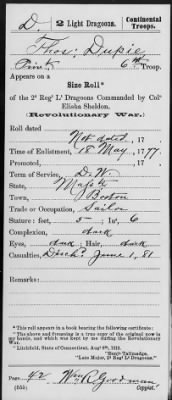 D. 2 Light Dragoons. Continental Troops.
Thos: Dupie
Privt 6th Troop.
Appears on a
Size Roll*
of the 2d Regt Lt Dragoons Commanded by Colo
Elisha Sheldon.
(Revolutionary War.)
Roll dated
Not dated, 17 .
Time of Enlistment, 18 May, 1777.
Promoted, , 17 .
Term of Service, D.W.
State, Mass
Town, Boston
Trade or Occupation, Sailor
Stature: feet, 5 ; in., 6
Complexion, dark
Eyes, dark; Hair, dark
Casualties, Disch.d June 1, 81
Remarks:
*This roll appears in a book bearing the following certificate:
The above and foregoing is a true copy of the original now in my hands, and which was kept by me during the Revolutionary War.
Litchfield, State of Connecticut, Augt
Benjn Tallmadge,
Late Major, 2d Regt Lt Dragoons."
Page, 42 Wm R. Goodman
(555) Copyist.